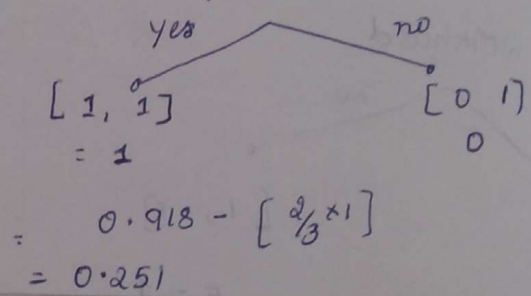 yes no
[ 1, 1 ] [ 0 1 ]
= 1 0
= 0.918 - [ 2/3 × 1 ]
= 0.251